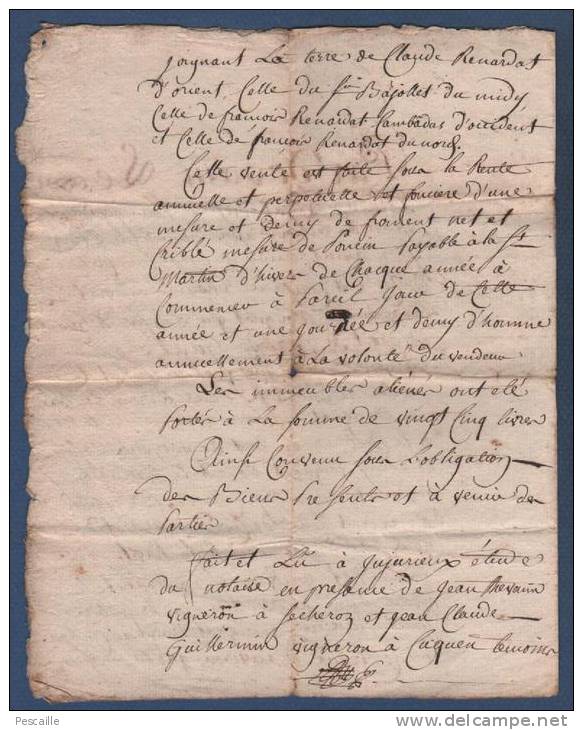 joignant La terre de Claude Renardat
d'orient Celle du Sr Bajollet du midy
Celle de francois Renardat Cambadas d'occident
et Celle de francois Renardat du nord.
Cette vente est faite sous la Rente
annuelle et perpetuelle et fonciere d'une
mesure et demy de froment net et
Criblé mesure de Poncin payable à la St
Martin d'hivers de Chacque année à
Commencer à pareil jour de Cette
année et une journée et demy d'homme
annuellement à La volonté du vendeur
Les immeubles aliénés ont eté
portés à La somme de vingt Cinq livres
Ainsi Convenu sous L'obligation
des Biens presents et à venir des
parties
fait et Lu à Jujurieux étude
du notaire en presence de Jean
vigneron à Secheroz et jean Claude
Guillermin vigneron à Cuquen temoins
Pescaille
www.delcampe.net